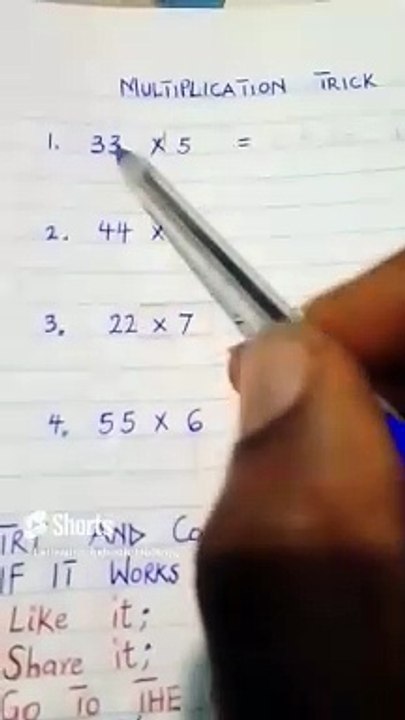 MULTIPLICATION TRICK
1. 33 × 5 =
2. 44 ×
3. 22 × 7
4. 55 × 6
Shorts
TRY AND Co
IF IT WORKS
Like it;
Share it;
GO TO THE